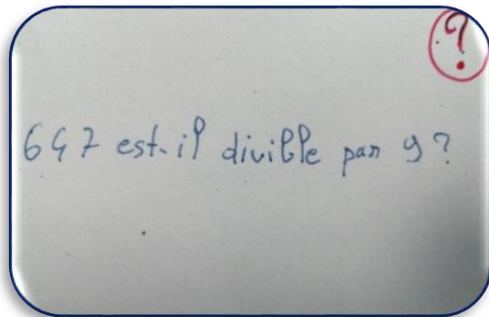 ?
647 est-il divible par 9 ?